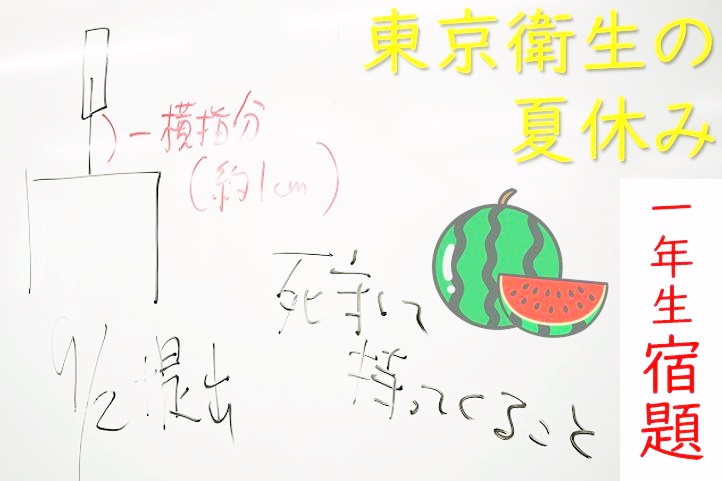 東京衛生の
夏休み
一横指分
(約1cm)
一年生宿題
死守して
持ってくること
9/2提出